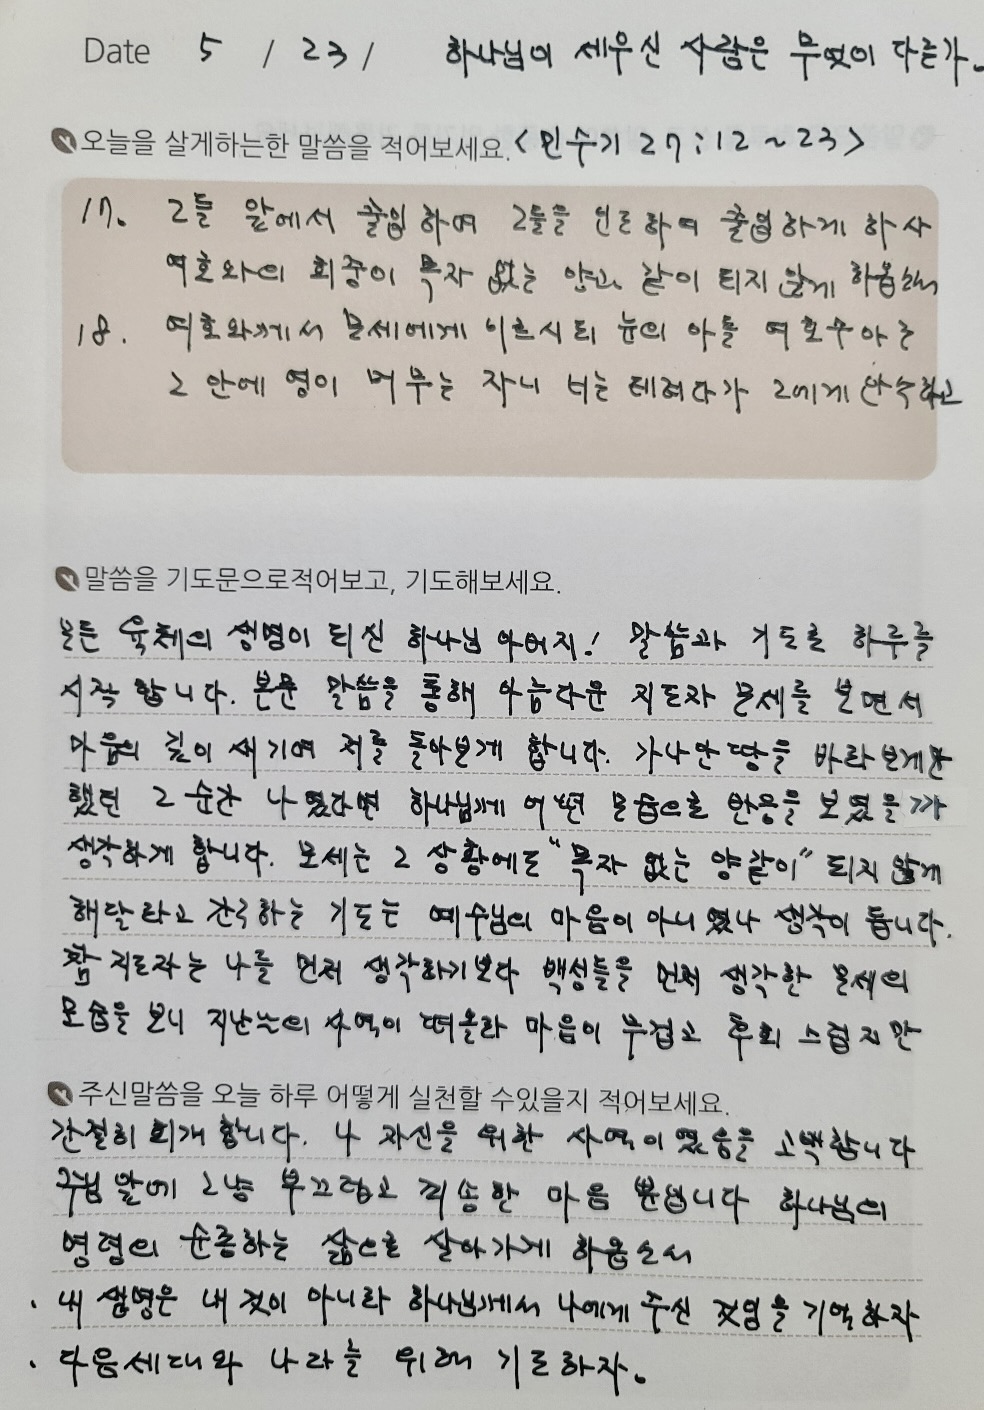 Date 5 / 23 / 하나님이 세우신 사람은 무엇이 다른가.
오늘을 살게하는한 말씀을 적어보세요. <민수기 27:12~23>
17. 그들 앞에서 출입하며 그들을 인도하여 출입하게 하사
여호와의 회중이 목자 없는 양과 같이 되지 않게 하옵소서
18. 여호와께서 모세에게 이르시되 눈의 아들 여호수아는
그 안에 영이 머무는 자니 너는 데려다가 그에게 안수하고
말씀을 기도문으로적어보고, 기도해보세요.
모든 육체의 생명이 되신 하나님 아버지! 말씀과 기도로 하루를
시작 합니다. 본문 말씀을 통해 아름다운 지도자 모세를 보면서
마음의 깊이 새기며 저를 돌아보게 합니다. 가나안 땅을 바라보게만
했던 그 순간 나였다면 하나님께 어떤 모습으로 반응을 보였을까
생각하게 합니다. 모세는 그 상황에도 "목자 없는 양같이" 되지 않게
해달라고 간구하는 기도는 예수님의 마음이 아니였나 생각이 듭니다.
참 지도자는 나를 먼저 생각하기보다 백성들을 먼저 생각한 모세의
모습을 보니 지난 의 사역이 떠올라 마음이 무겁고 후회 스럽지만
주신말씀을 오늘 하루 어떻게 실천할 수있을지 적어보세요.
간절히 회개 합니다. 나 자신을 위한 사역이였음을 고백합니다
주님 앞에 그냥 부끄럽고 죄송한 마음 뿐입니다 하나님의
명령의 순종하는 삶으로 살아가게 하옵소서
. 내 생명은 내 것이 아니라 하나님께서 나에게 주신 것임을 기억하자
. 다음세대와 나라를 위해 기도하자.